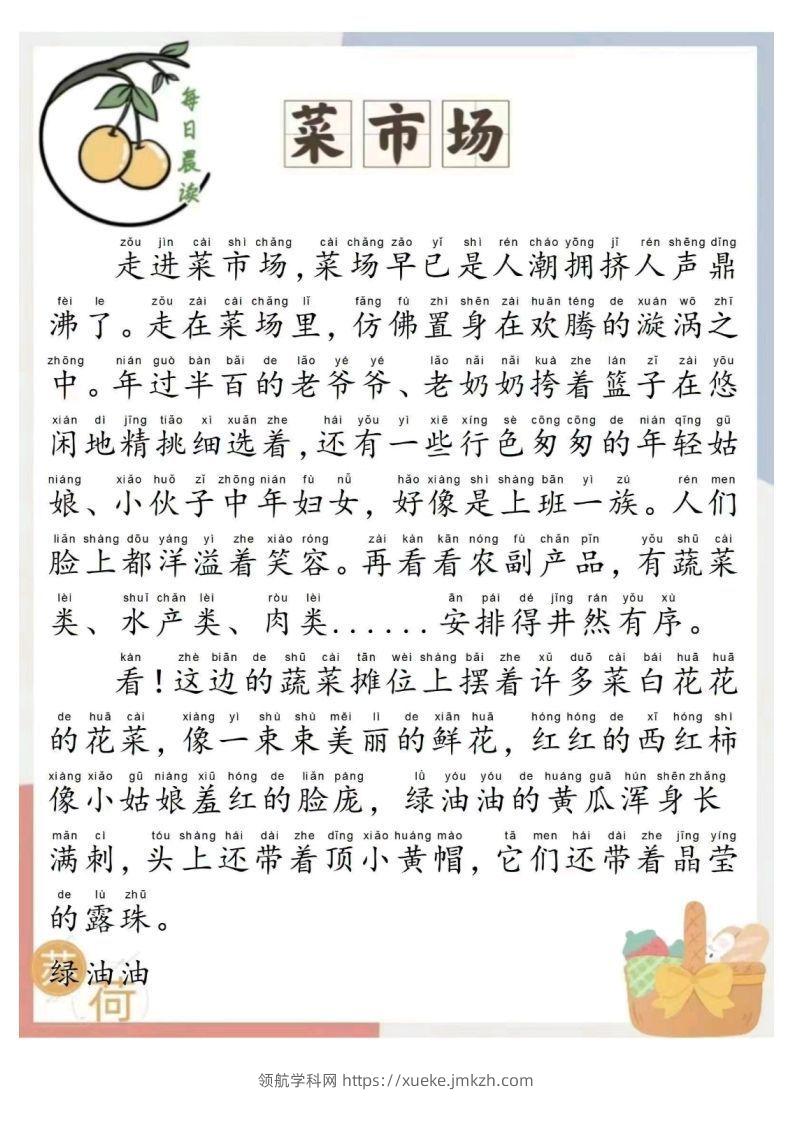 每日晨读
菜市场
zǒu jìn cài shì chǎng cài chǎng zǎo yǐ shì rén cháo yōng jǐ rén shēng dǐng
走进菜市场,菜场早已是人潮拥挤人声鼎
fèi le zǒu zài cài chǎng lǐ fǎng fú zhì shēn zài huān téng de xuán wō zhī
沸了。走在菜场里,仿佛置身在欢腾的漩涡之
zhōng nián guò bàn bǎi de lǎo yé yé lǎo nǎi nǎi kuà zhe lán zǐ zài yōu
中。年过半百的老爷爷、老奶奶挎着篮子在悠
xián dì jīng tiāo xì xuǎn zhe hái yǒu yì xiē xíng sè cōng cōng de nián qīng gū
闲地精挑细选着,还有一些行色匆匆的年轻姑
niáng xiǎo huǒ zǐ zhōng nián fù nǚ hǎo xiàng shì shàng bān yì zú rén men
娘、小伙子中年妇女,好像是上班一族。人们
liǎn shàng dōu yáng yì zhe xiào róng zài kàn kān nóng fù chǎn pǐn yǒu shū cài
脸上都洋溢着笑容。再看看农副产品,有蔬菜
lèi shuǐ chǎn lèi ròu lèi ān pái dé jǐng rán yǒu xù
类、水产类、肉类......安排得井然有序。
kàn zhè biān de shū cài tān wèi shàng bǎi zhe xǔ duō cài bái huā huā
看!这边的蔬菜摊位上摆着许多菜白花花
de huā cài xiàng yì shù shù měi lì de xiān huā hóng hóng de xī hóng shì
的花菜,像一束束美丽的鲜花,红红的西红柿
xiàng xiǎo gū niáng xiū hóng de liǎn páng lǜ yóu yóu de huáng guā hún shēn zhǎng
像小姑娘羞红的脸庞,绿油油的黄瓜浑身长
mǎn cì tóu shàng hái dài zhe dǐng xiǎo huáng mào tā men hái dài zhe jīng yíng
满刺,头上还带着顶小黄帽,它们还带着晶莹
de lù zhū
的露珠。
绿油油
荷
领航学科网 https://xueke.jmkzh.com